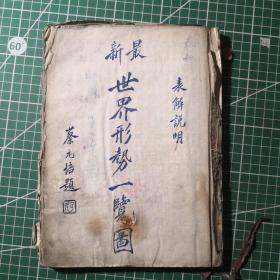 最新
世界形勢一覽圖
表解説明
蔡元培題
60°